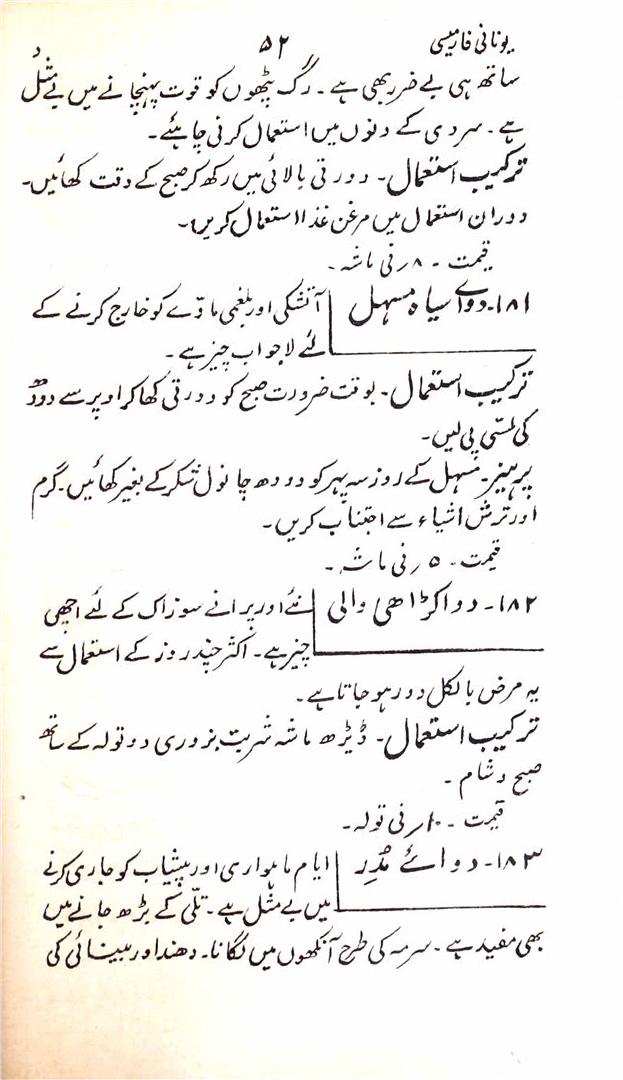 یونانی فارمیسی ۵۲ د
ساتھ ہی بے ضرر بھی ہے۔ رگ پٹھوں کو قوت پہنچانے میں بے مثل
ہے۔ سردی کے دنوں میں استعمال کرنی چاہئے۔
ترکیب استعمال۔ دو رتی بالائی میں رکھ کر صبح کے وقت کھائیں۔
دوران استعمال میں مرغن غذا استعمال کریں۔
قیمت۔ ۸؍ فی ماشہ۔
۱۸۱۔ دوائے سیاہ مسہل آتشکی اور بلغمی مادّے کو خارج کرنے کے
لئے لاجواب چیز ہے۔
ترکیب استعمال۔ بوقت ضرورت صبح کو دو رتی کھا کر اوپر سے دودھ
کی لسّی پی لیں۔
پرہیز۔ مسہل کے روز سہ پہر کو دودھ چانول شکر کے بغیر کھائیں۔ گرم
اور ترش اشیاء سے اجتناب کریں۔
قیمت۔ ۵؍ فی ماشہ۔
۱۸۲۔ دوا کڑاھی والی نئے اور پرانے سوزاک کے لئے اچھی
چیز ہے۔ اکثر چند روز کے استعمال سے
یہ مرض بالکل دور ہو جاتا ہے۔
ترکیب استعمال۔ ڈیڑھ ماشہ شربت بزوری دو تولہ کے ساتھ
صبح و شام۔
قیمت۔ ۱۰؍ فی تولہ۔
۱۸۳۔ دوائے مُدِر ایام ماہواری اور پیشاب کو جاری کرنے
میں بے مثل ہے۔ تلّی کے بڑھ جانے میں
بھی مفید ہے۔ سرمہ کی طرح آنکھوں میں لگانا۔ دھند اور بینائی کی